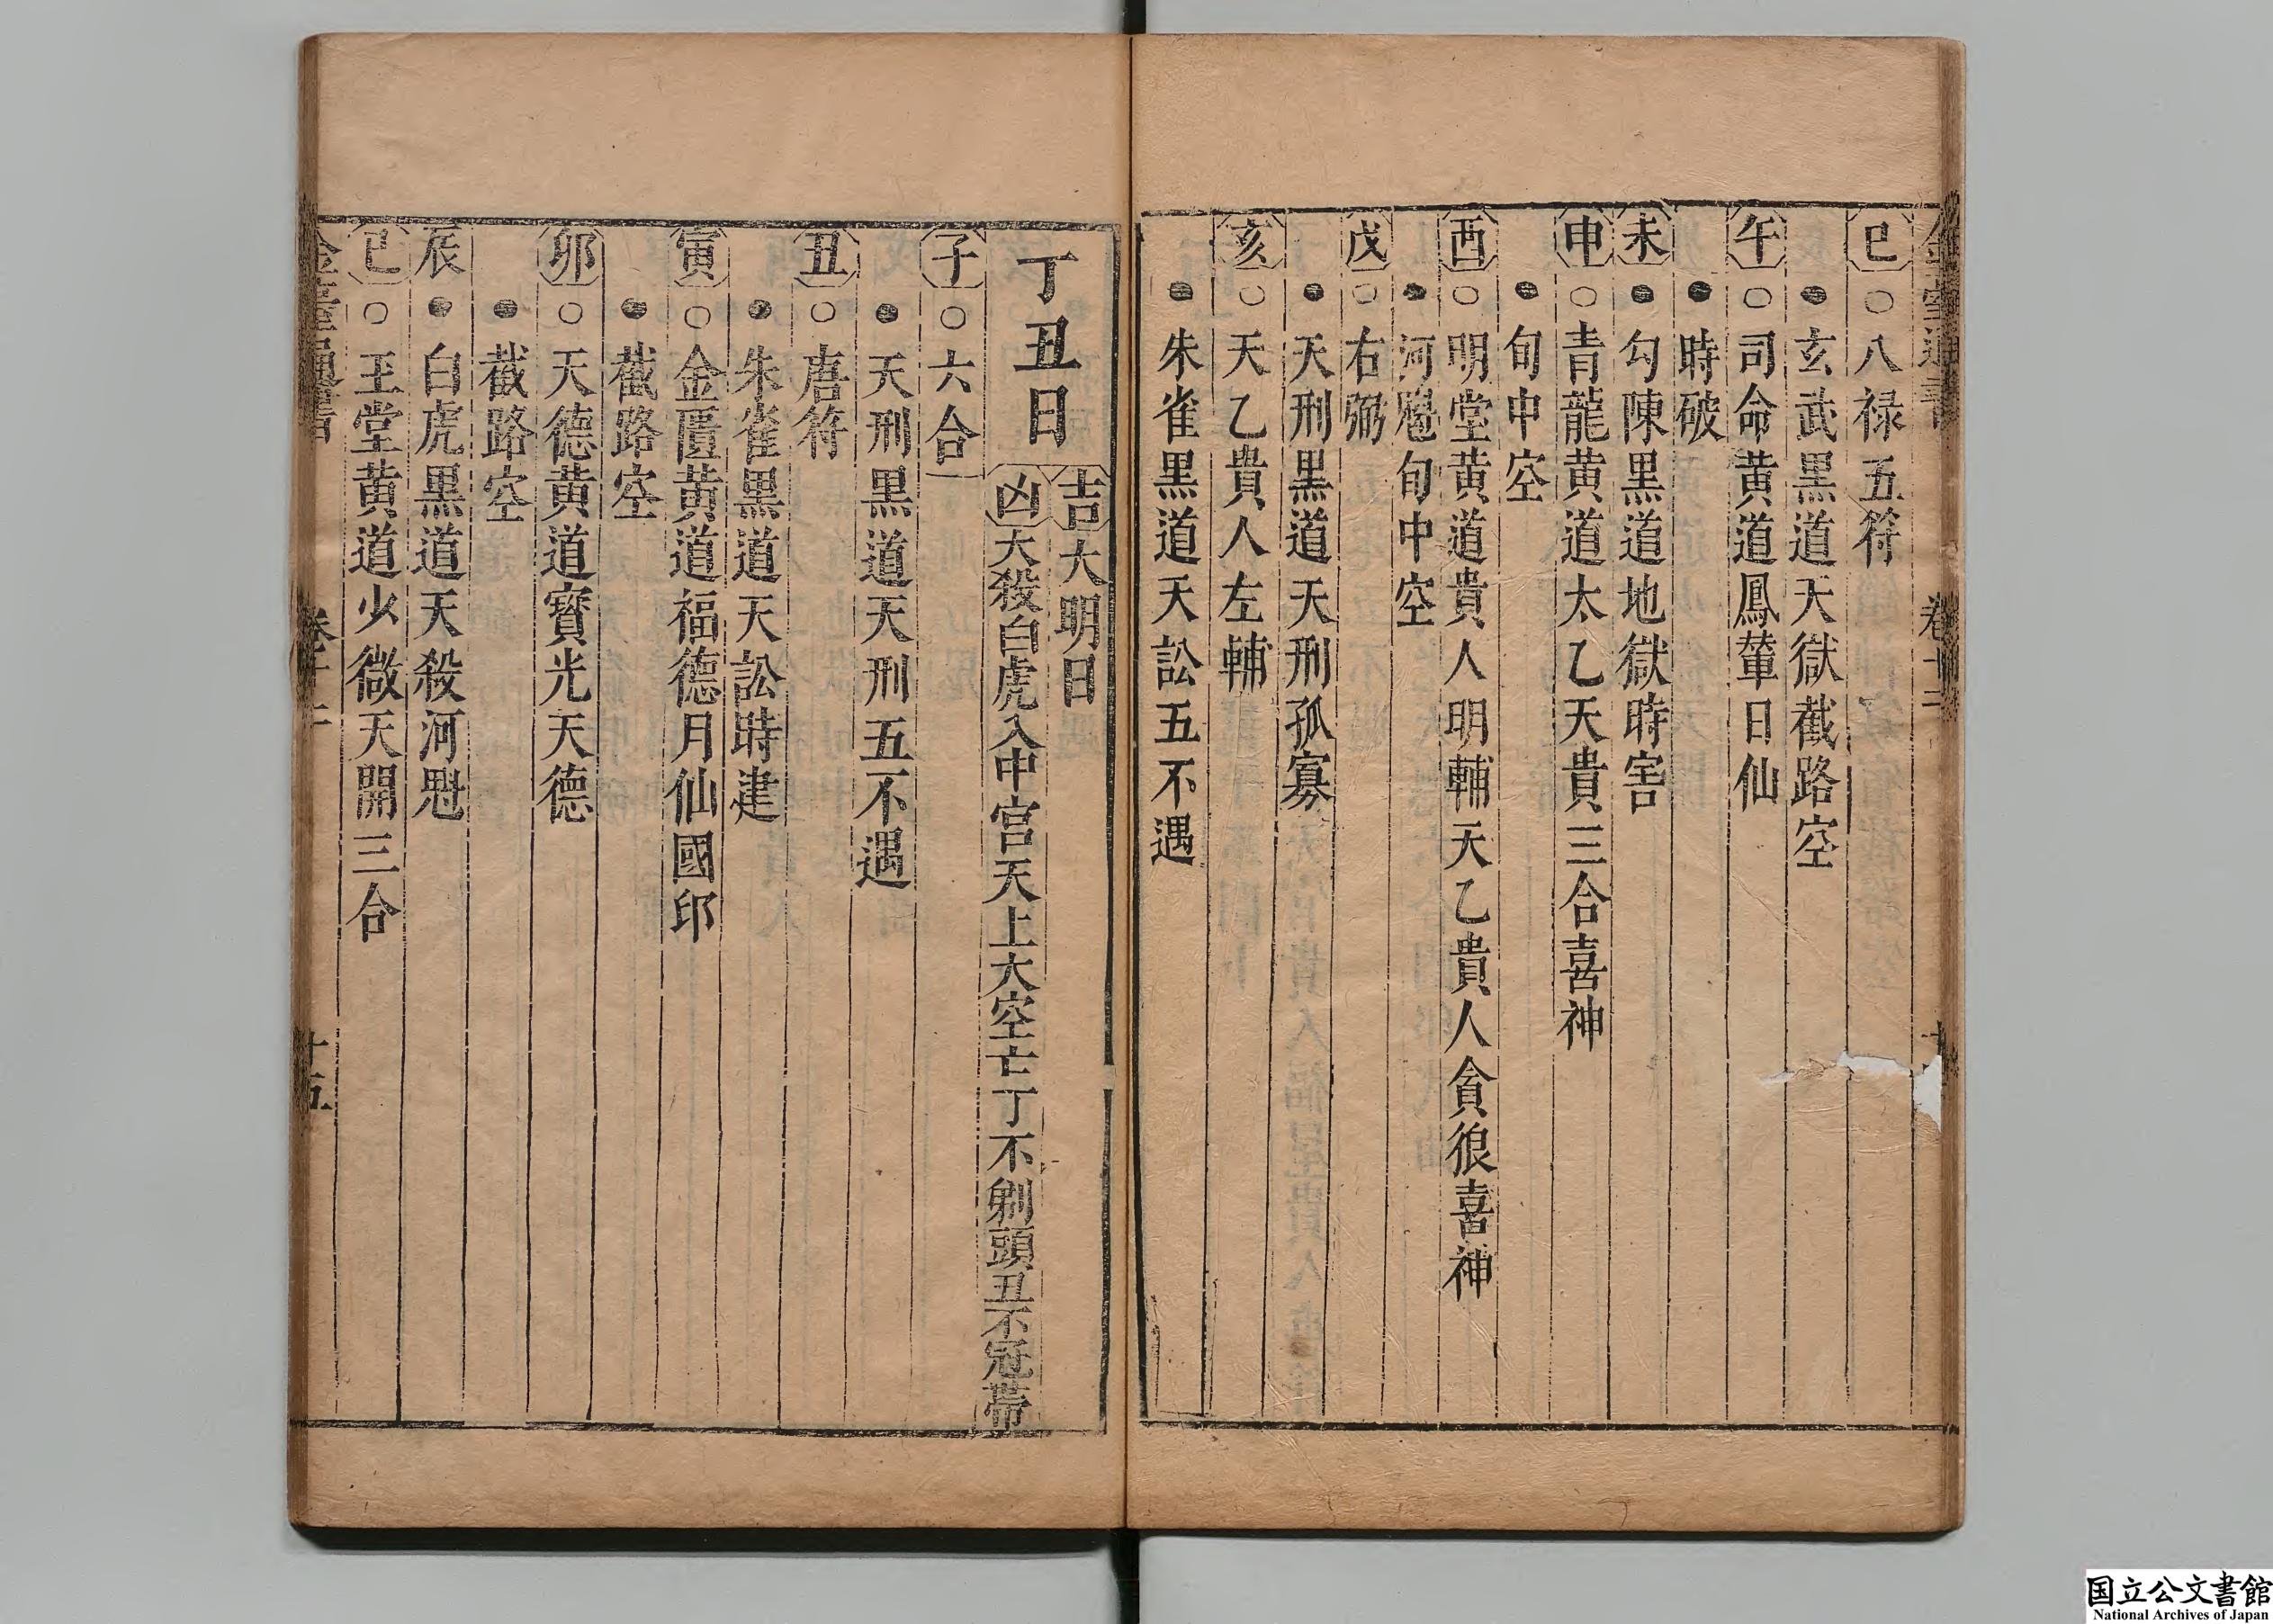 巳○八禄五符
●玄武黒道天獄截路空
午○司命黄道鳳輦日仙
●時破
未●勾陳黒道地獄時害
申○青龍黄道太乙天貴三合喜神
●旬中空
酉○明堂黄道貴人明輔天乙貴人貪狼喜神
●河魁旬中空
戌○右弼
●天刑黒道天刑孤寡
亥○天乙貴人左輔
●朱雀黒道天訟五不遇
丁丑日
吉大明日
凶大殺白虎入中宮天上大空亡丁不剃頭丑不冠帶
子○六合
●天刑黒道天刑五不遇
丑○唐符
●朱雀黒道天訟時建
寅○金匱黄道福德月仙國印
●截路空
卯○天德黄道寶光天德
●截路空
辰●白虎黒道天殺河魁
巳○玉堂黄道少微天開三合
十五
国立公文書館
National Archives of Japan